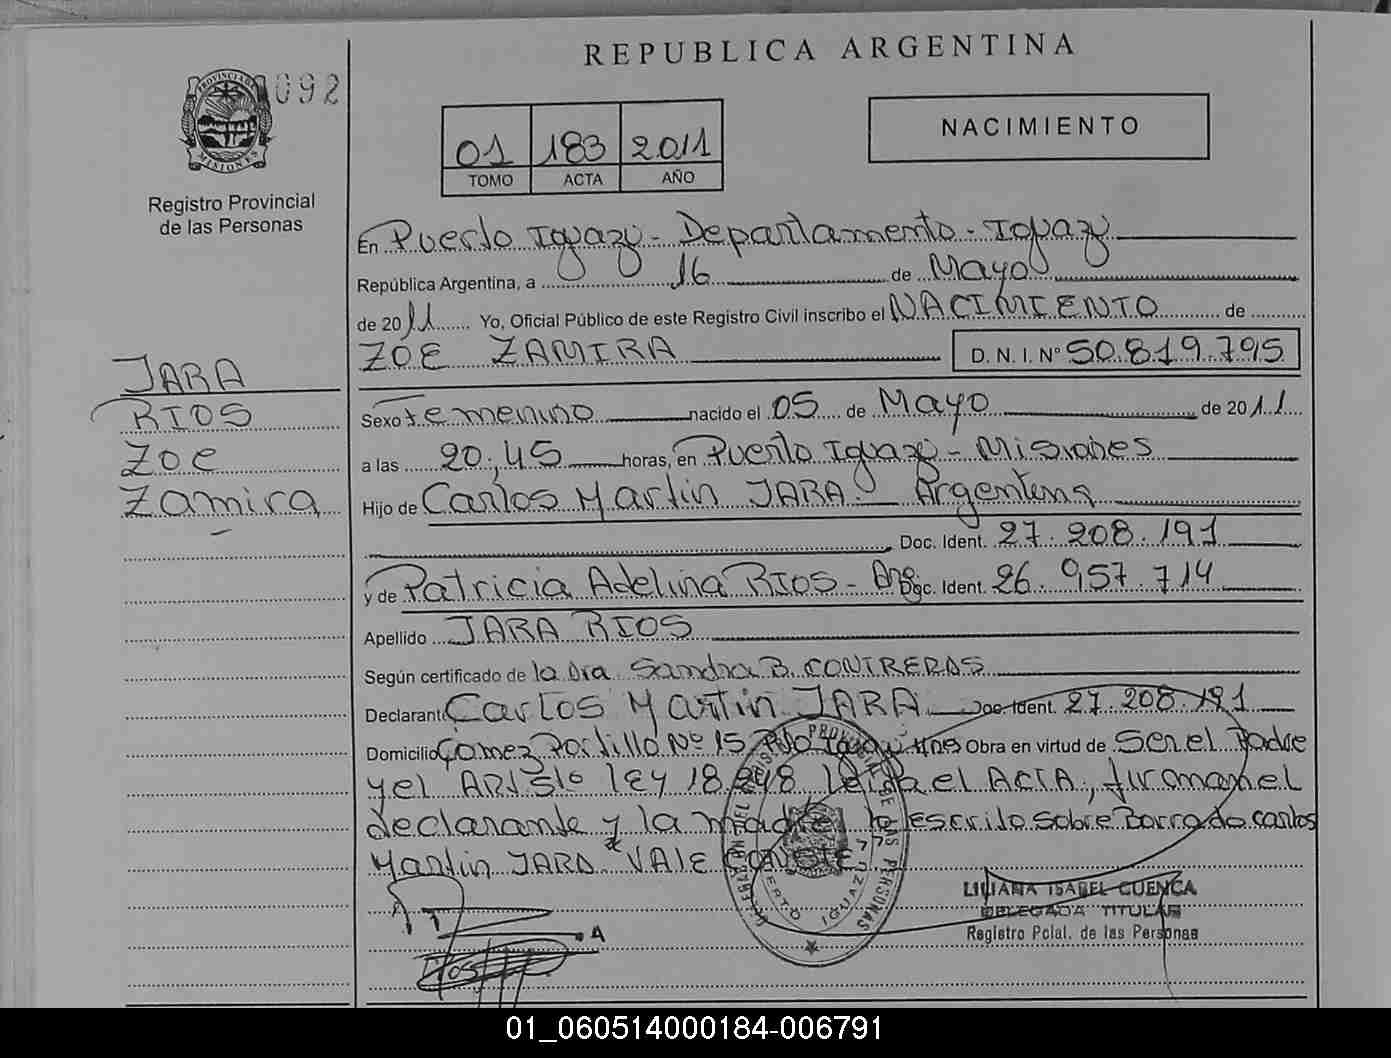 REPUBLICA ARGENTINA
PROVINCIA DE MISIONES
092
Registro Provincial
de las Personas
01 183 2011
TOMO ACTA AÑO
NACIMIENTO
En Puerto Iguazu - Departamento - Iguazu
República Argentina, a 16 de Mayo
de 2011 Yo, Oficial Público de este Registro Civil inscribo el NACIMIENTO de
ZOE ZAMIRA D. N. I. Nº 50.819.795
JARA
RIOS
Zoe
Zamira
Sexo Femenino nacido el 05 de Mayo de 2011
a las 20:45 horas, en Puerto Iguazu - Misiones
Hijo de Carlos Martin JARA. Argentina
Doc. Ident. 27.208.191
y de Patricia Adelina RIOS - Arg. Doc. Ident. 26.957.714
Apellido JARA RIOS
Según certificado de la Dra Sandra B. CONTRERAS
Declarante Carlos Martin JARA Doc. Ident. 27.208.191
Domicilio Gomez Portillo Nº 15 Pto Iguazu Mnes Obra en virtud de Ser el Padre
y el ART 51º LEY 18.248 Leida el ACTA, firman el
declarante y la madre lo escrito sobre Borrado Carlos
Martin JARA "VALE CONSTE
REGISTRO PROVINCIAL DE LAS PERSONAS
PUERTO IGUAZU
LILIANA ISABEL CUENCA
DELEGADA TITULAR
Registro Pcial. de las Personas
01_060514000184-006791